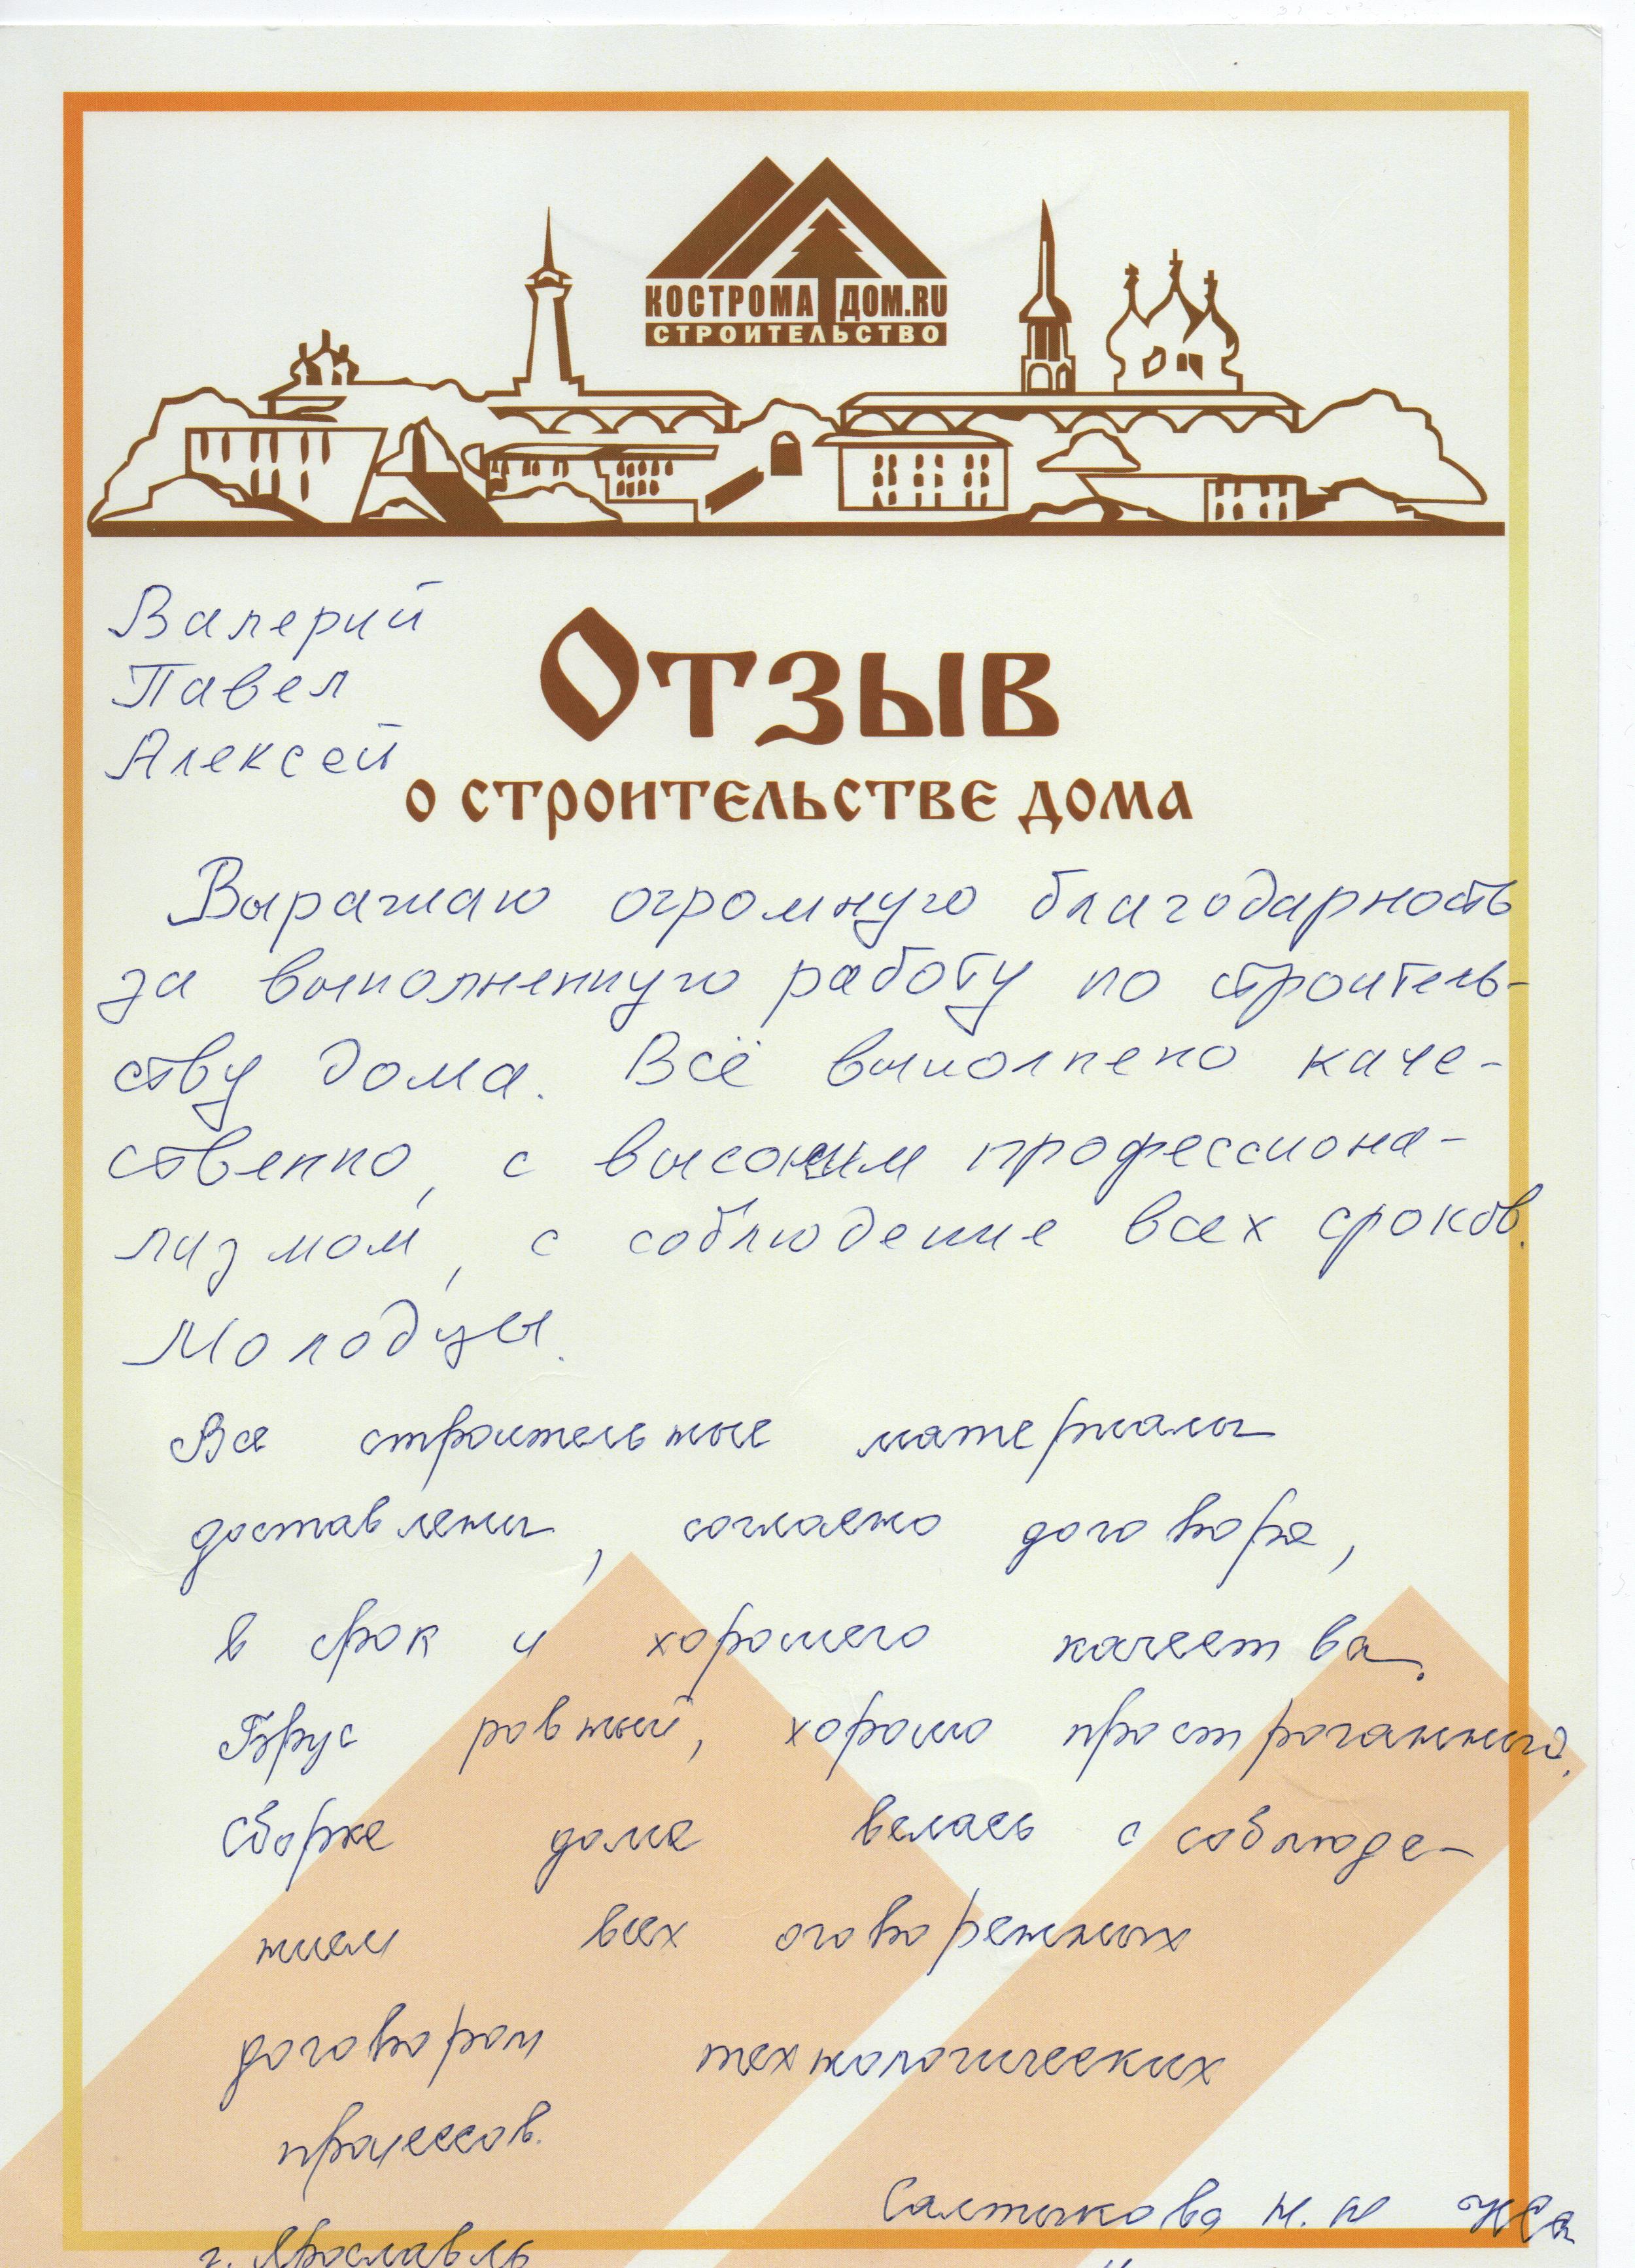 КОСТРОМА ДОМ.RU
СТРОИТЕЛЬСТВО
Валерий
Павел
Алексей
Отзыв
о строительстве дома
Выражаю огромную благодарность
за выполненную работу по строитель-
ству дома. Всё выполнено каче-
ственно, с высоким профессиона-
лизмом, с соблюдение всех сроков.
Молодцы.
Все строительные материалы
доставлены, согласно договора,
в срок и хорошего качества.
Брус ровный, хорошо простроганный.
Сборка дома велась с соблюде-
нием всех оговоренных
договором технологических
процессов.
Салтыкова Н. Н
г. Ярославль